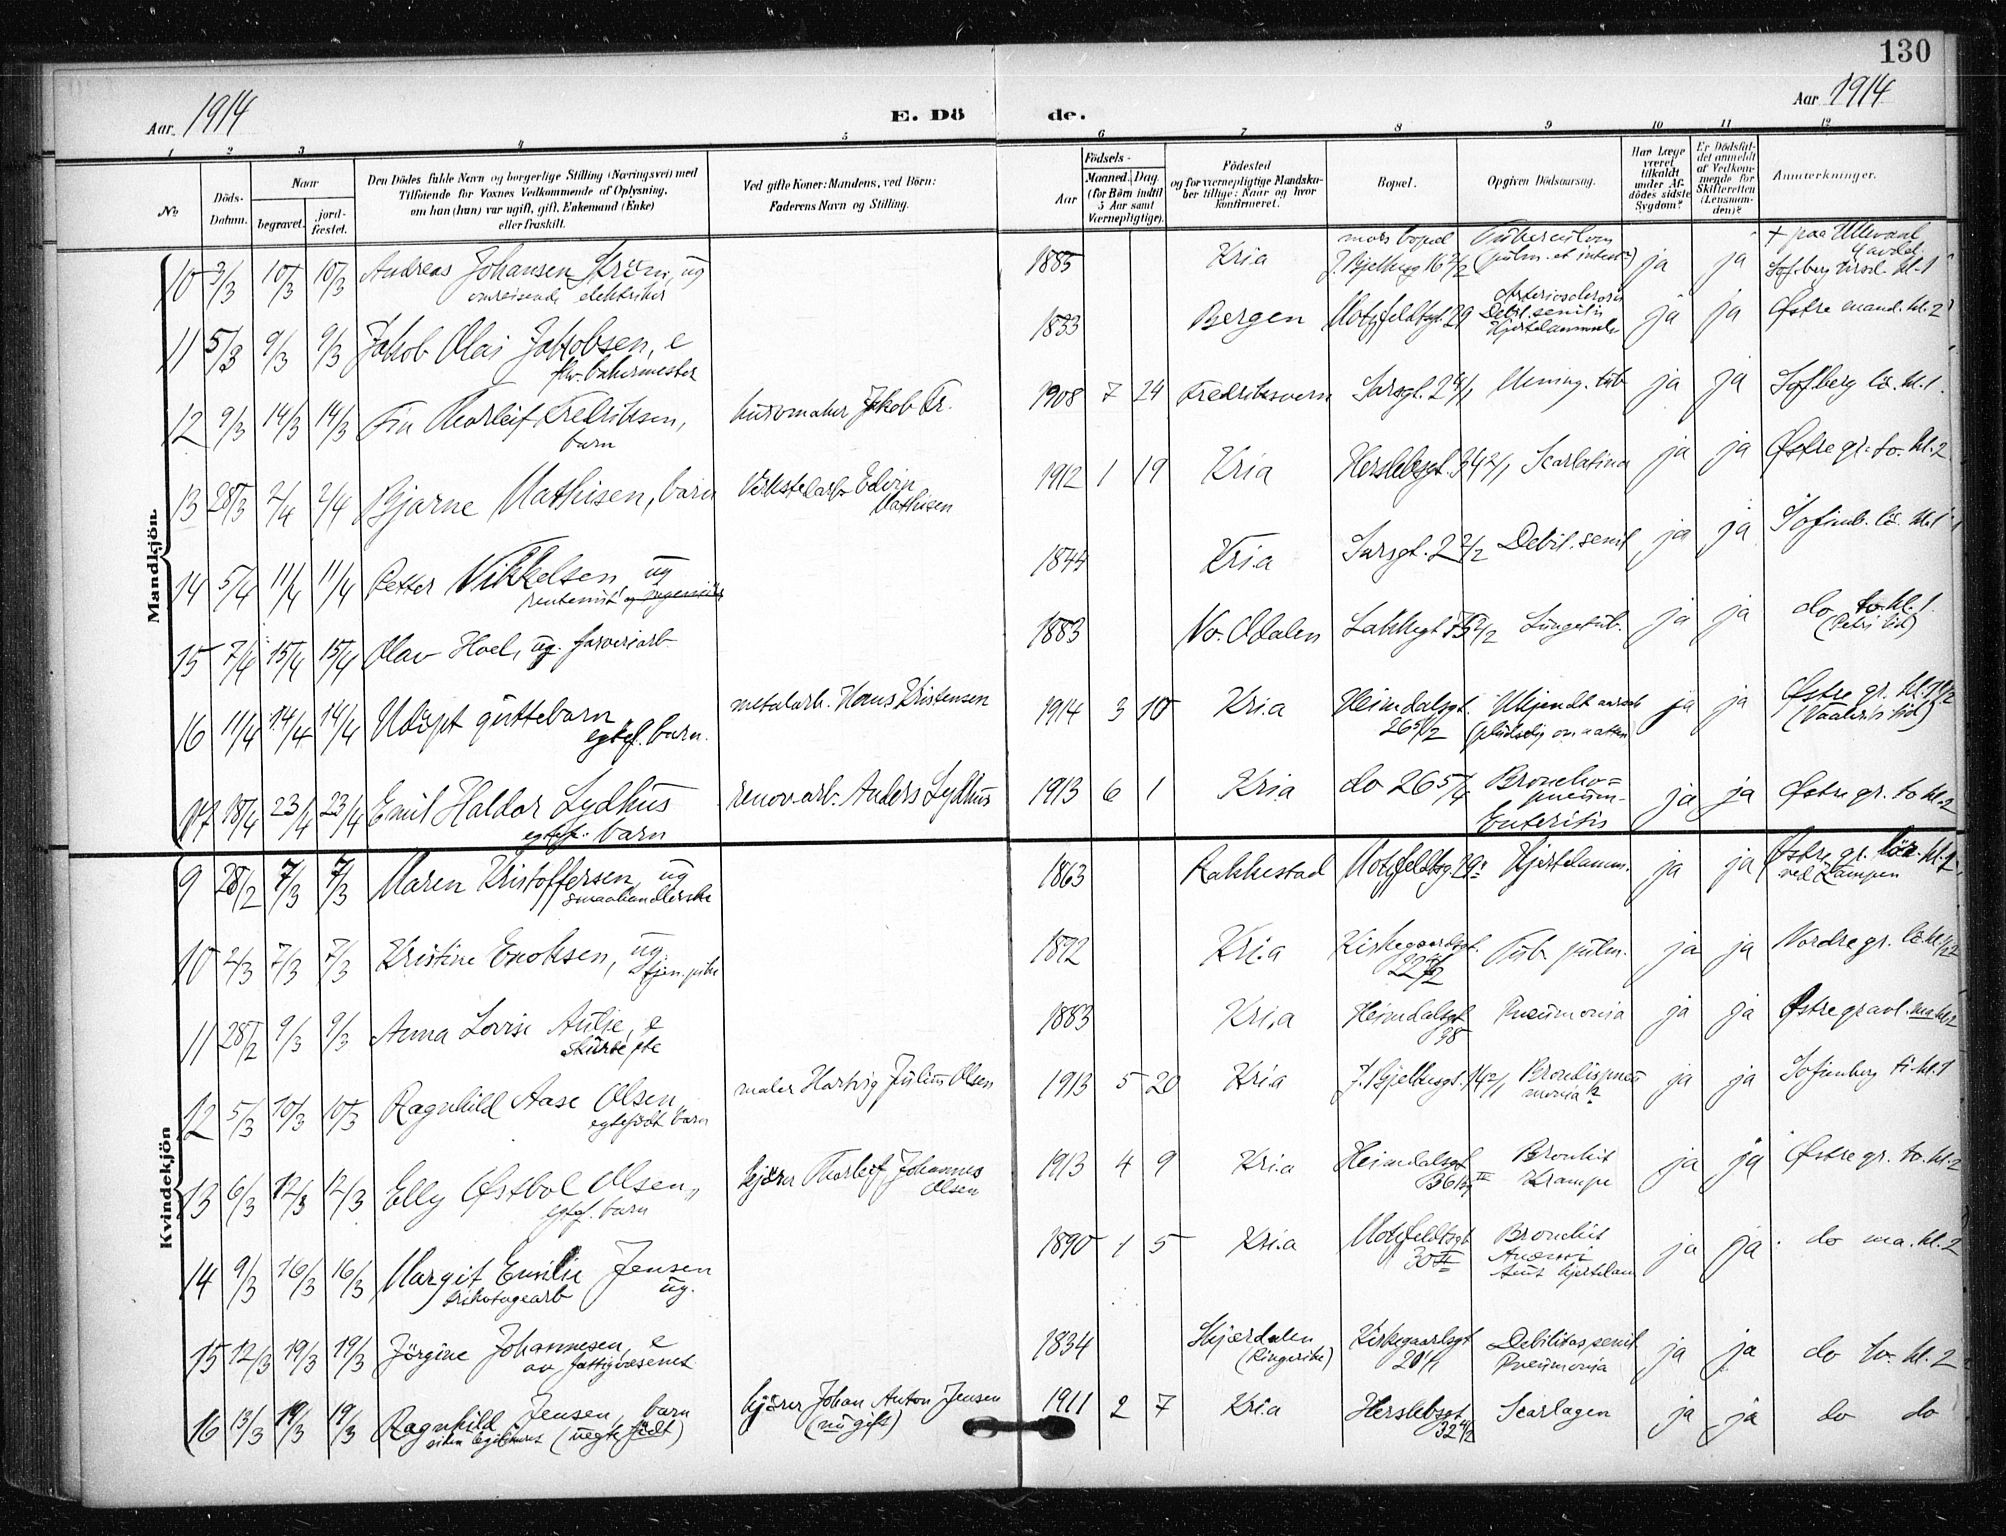 130
Aar 1914
E. Dö de.
Aar 1914
1 2 3 4 5 6 7 8 9 10 11 12
No.
Döds-Datum.
Naar
begravet.
jord-fæstet.
Den Dödes fulde Navn og borgerlige Stilling (Næringsvei) med
Tilföiende for Voxnes Vedkommende af Oplysning,
om han (hun) var ugift, gift, Enkemand (Enke)
eller fraskilt.
Ved gifte Koner: Mandens, ved Börn:
Faderens Navn og Stilling.
Födsels-
Aar
Maaned. Dag.
(for Börn indtil
5 Aar samt
Værnepligtige).
Födested
og for værnepligtige Mandska-
ber tillige: Naar og hvor
konfirmeret.
Bopæl.
Opgiven Dödsaarsag.
Har Læge
været
tilkaldt
under Af-
dödes sidste
Sygdom?
Er Dödsfal-
det anmeldt
af Vedkom-
mende for
Skifteretten
(Lensman-
den)?
Anmærkninger.
Mandkjön.
10 3/3 10/3 10/3 Andreas Johansen Ström, ug 1885 Kria ja ja
omreisende elektriker
11 5/3 9/3 9/3 Jakob Olai Jakobsen, e 1833 Bergen Motzfeldtsgt. 29 Arteriosclerosis ja ja Østre mand. kl. 2
fhv. bakermester Debil. senilis
12 9/3 14/3 14/3 Fin Thorleif Fredriksen, Jakob Fr. 1908 7 24 Fredriksvern Sarsgt. 2 4/1 Mening. tub ja ja Sofberg lö. kl. 1
barn
13 28/3 2/4 2/4 Bjarne Mathisen, barn Verkstedarb. Edvin 1912 1 19 Kria Herslebsgt. 34 2/1 Scarlatina ja ja Østre gr. to. kl. 2
Mathisen
14 5/4 11/4 11/4 Petter Nikkelsen, ug 1844 Kria Sarsgt. 2 2/2 Debil. senil ja ja Sofienb. lö. kl. 1
rentenist og ingeniör
15 7/4 15/4 15/4 Olav Hoel, ug. farveriarb. 1883 No. Odalen Lakkegt 75 2/2 Lungetub. ja ja do to. kl. 1
16 11/4 14/4 14/4 Udöpt guttebarn metalarb. Hans Kristensen 1914 3 10 Kria Heimdalsgt. Ukjendt aarsak ja ja Østre gr. kl. 1 1/2
egtef. barn. 26 5/2 (pludselig om natten)
17 18/4 23/4 23/4 Emil Haldor Lydhus renov.arb. Anders Lydhus 1913 6 1 Kria do 26 5/4 Broncho- ja ja Østre gr. to kl. 2
egtef. barn pneum-
Enteritis
Kvindekjön
9 28/2 7/3 7/3 Maren Kristoffersen, ug 1863 Rakkestad Motzfeldtsg. 29 Hjertelamm. ja ja Østre gr. lör. kl. 1
smaahandlerske ved Kampen
10 2/3 7/3 7/3 Kristine Enoksen, ug 1872 Kria Kirkegaardsgt. Tub. pulm. ja ja Nordre gr. lö. kl. 12
tjen. pike
11 28/2 9/3 9/3 Anna Lovise Aulie, e 1883 Kria Heimdalsgt Pneumonia ja ja Østre gravl. ma kl 2
38
12 5/3 10/3 10/3 Ragnhild Aase Olsen maler Hartvig Julius Olsen 1913 5 20 Kria J. Bjelkesgt. 14 2/1 ja ja Sofienberg ti. kl. 1
egtefödt barn
13 6/3 12/3 12/3 Elly Østbol Olsen, kjörer Thorleif Johannes 1913 4 9 Kria Heimdalsgt Bronkit ja ja Østre gr. to. kl. 2
egtef. barn Olsen Krampe
14 9/3 16/3 16/3 Margit Emilie Jensen 1890 1 5 Kria Motzfeldtsgt Bronchit ja ja do ma. kl. 2
trikotagearb ug. 30 II Anæmi
Akut hjertelam
15 12/3 19/3 19/3 Jörgine Johannesen, e 1834 Skjærdalen Kirkegaardsgt Debilitas senil ja ja do to. kl. 2
av fattigvæsenet (Ringerike) 20 1/1 Pneumonia
16 13/3 19/3 19/3 Ragnhild Jensen, barn kjörer Johan Anton Jensen 1911 2 7 Kria Herslebsgt Scarlagen ja ja do do
(uegte födt) (nu gift) 32 4/2